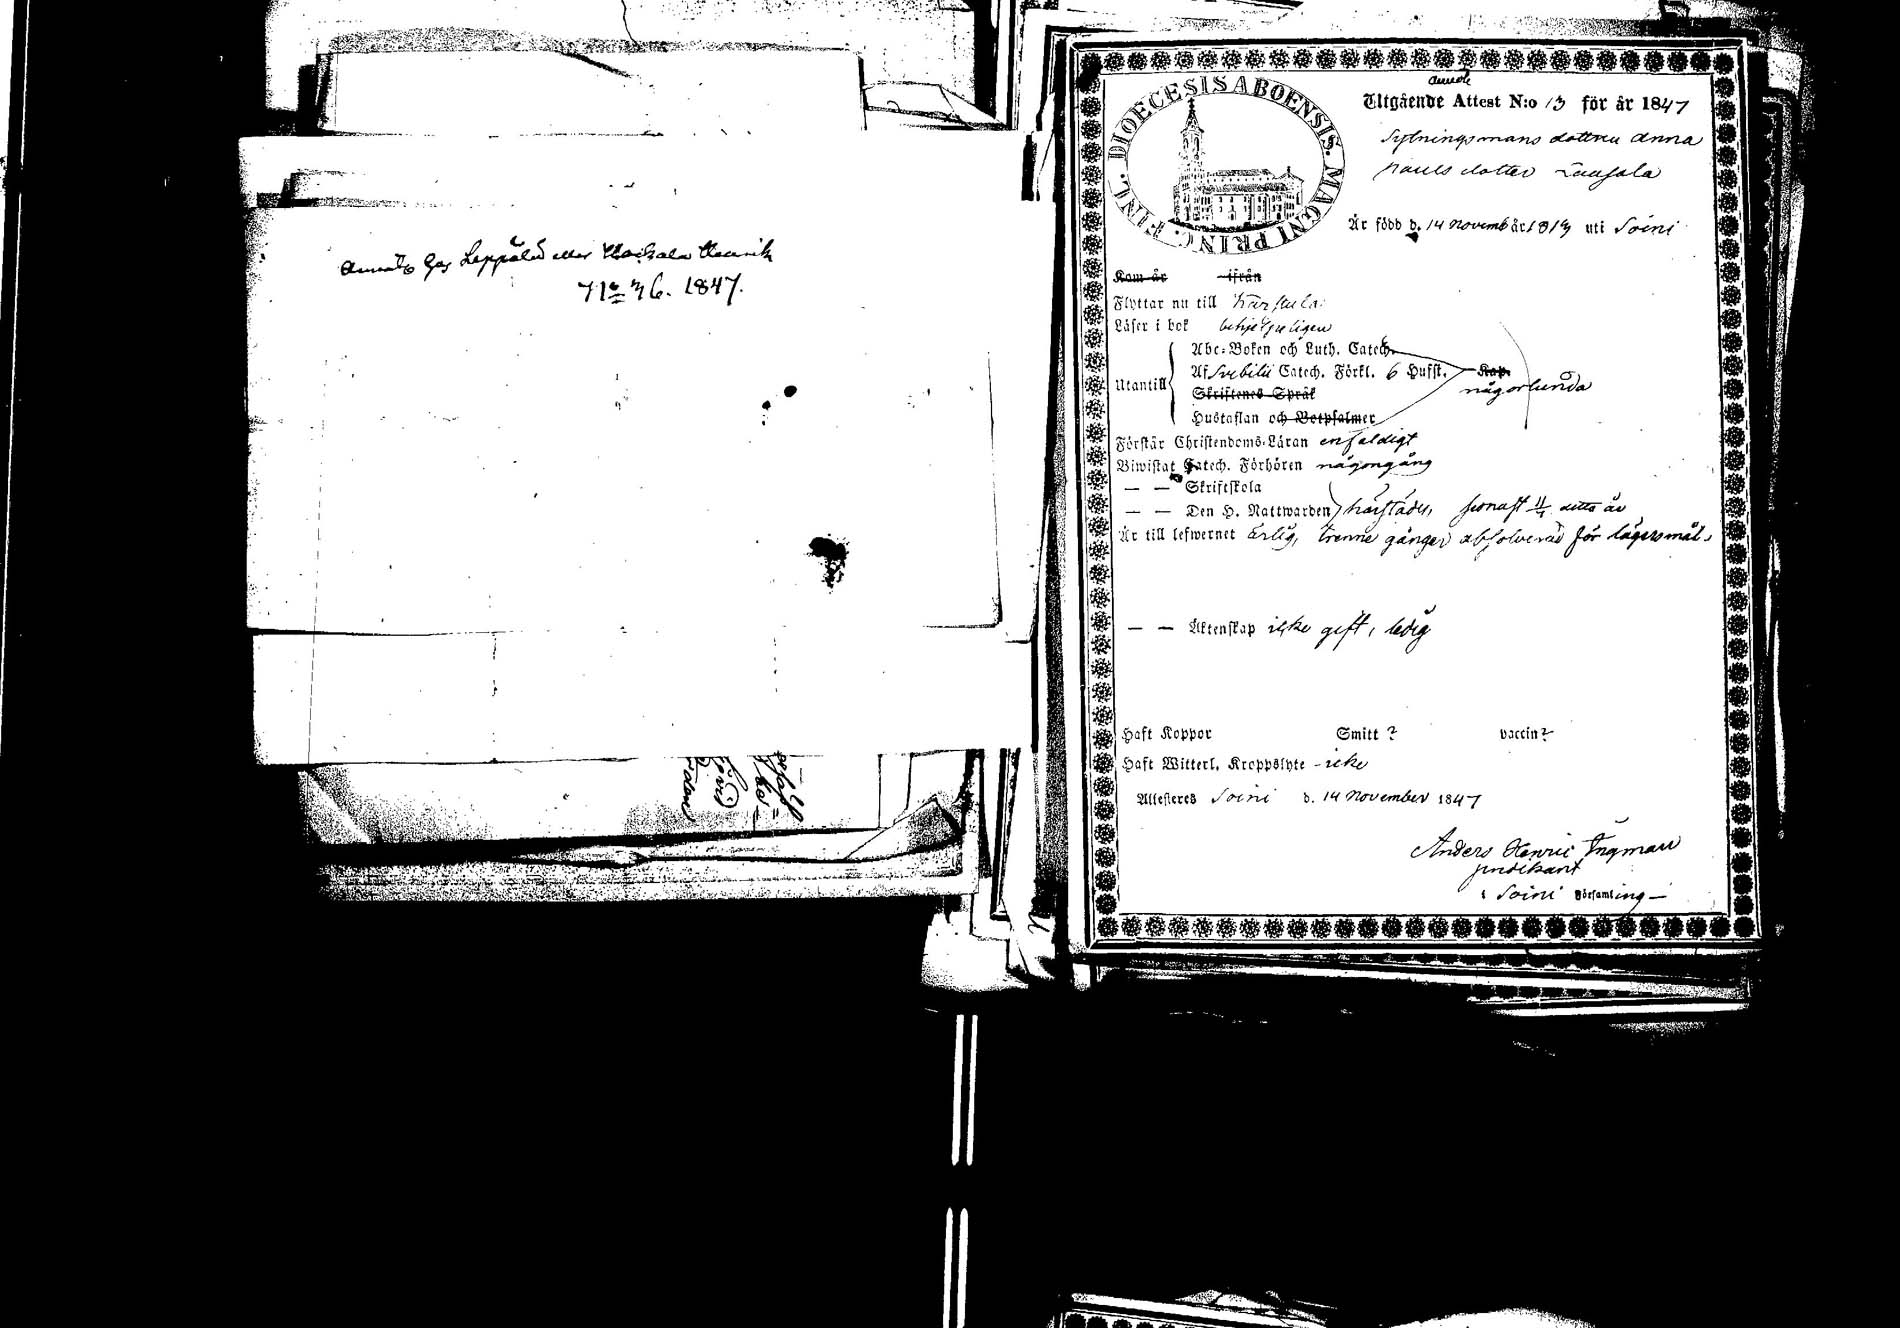 Anmält hos Leppälä eller Hackala Henrik
1847.
DIOECESIS ABOENSIS. MAGNI PRINC. FINL.
anmält
Utgående Attest N:o 13 för år 1847
Sytningsmans dottren Anna
Pauls dotter
Är född d. 14 Novemb år 1813 uti Soini
Kom år ifrån
Flyttar nu till Karstula
Läser i bok behjelpeligen
Abc-Boken och Luth. Catech.
Utantill
Af Svebilii Catech. Förkl. 6 Hufst. Kap.
någorlunda
Skriftenes Språk
Hustaflan och Botpsalmer
Förstår Christendoms-Läran enfaldigt
Biwistat Catech. Förhören någongång
— — Skriftskola
— — Den H. Nattwarden härstädes, senast detta år
Är till lefwernet ärlig, trenne gånger absolverad för lägersmål.
— — Äktenskap icke gift, ledig
Haft Koppor Smitt? vaccin?
Haft Witterl. Kroppslyte icke
Attesteres Soini d. 14 November 1847
Anders Henric Ingman
predikant
i Soini Församling